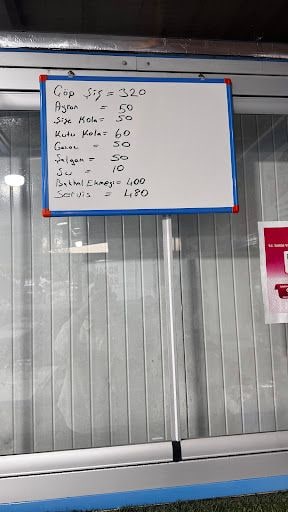 Çöp Şiş = 320
Ayran = 50
Şişe Kola = 50
Kutu Kola = 60
Gazoz = 50
Şalgam = 50
Su = 10
Bakkal Ekmeği = 400
Servis = 480